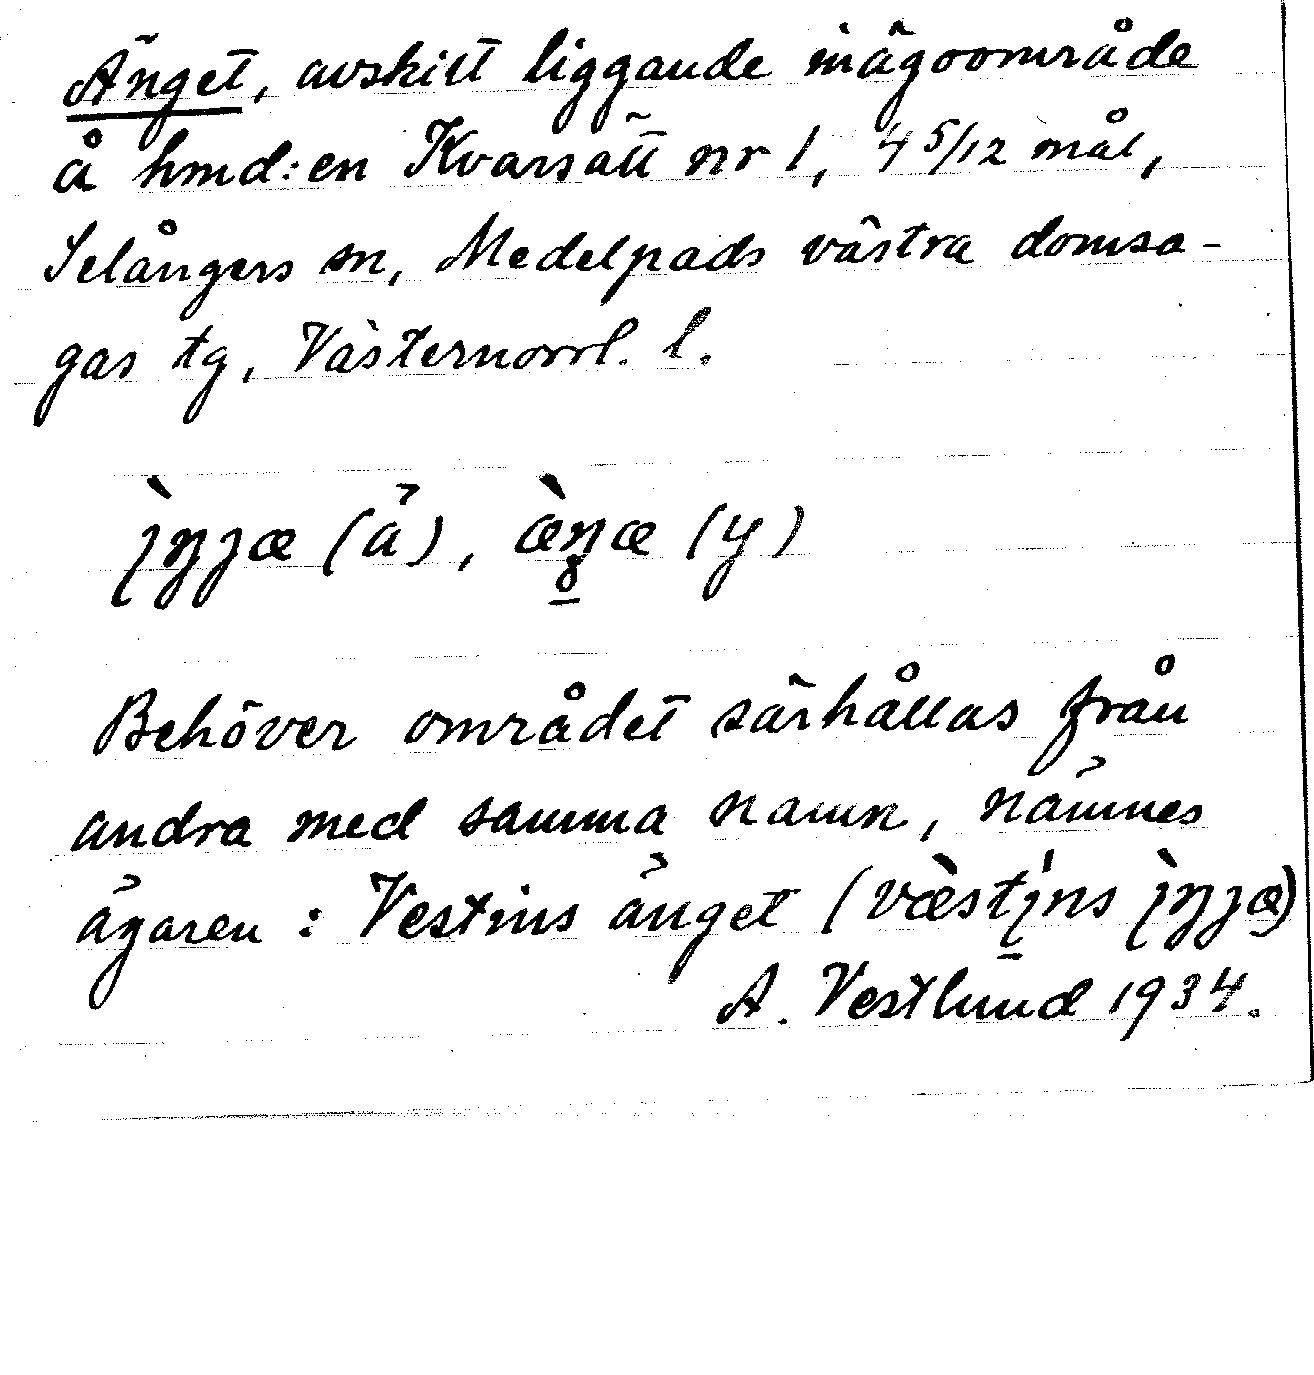 Änget, avskilt liggande inägoområde
å hmd:en Kvarsätt nr 1, 4 5/12 mål,
Selångers sn, Medelpads västra domsa-
gas tg, Västernorrl. l.
(ä), (y)
Behöver området särhållas från
andra med samma namn, nämnes
ägaren: Vestins änget
A. Vestlund 1934.